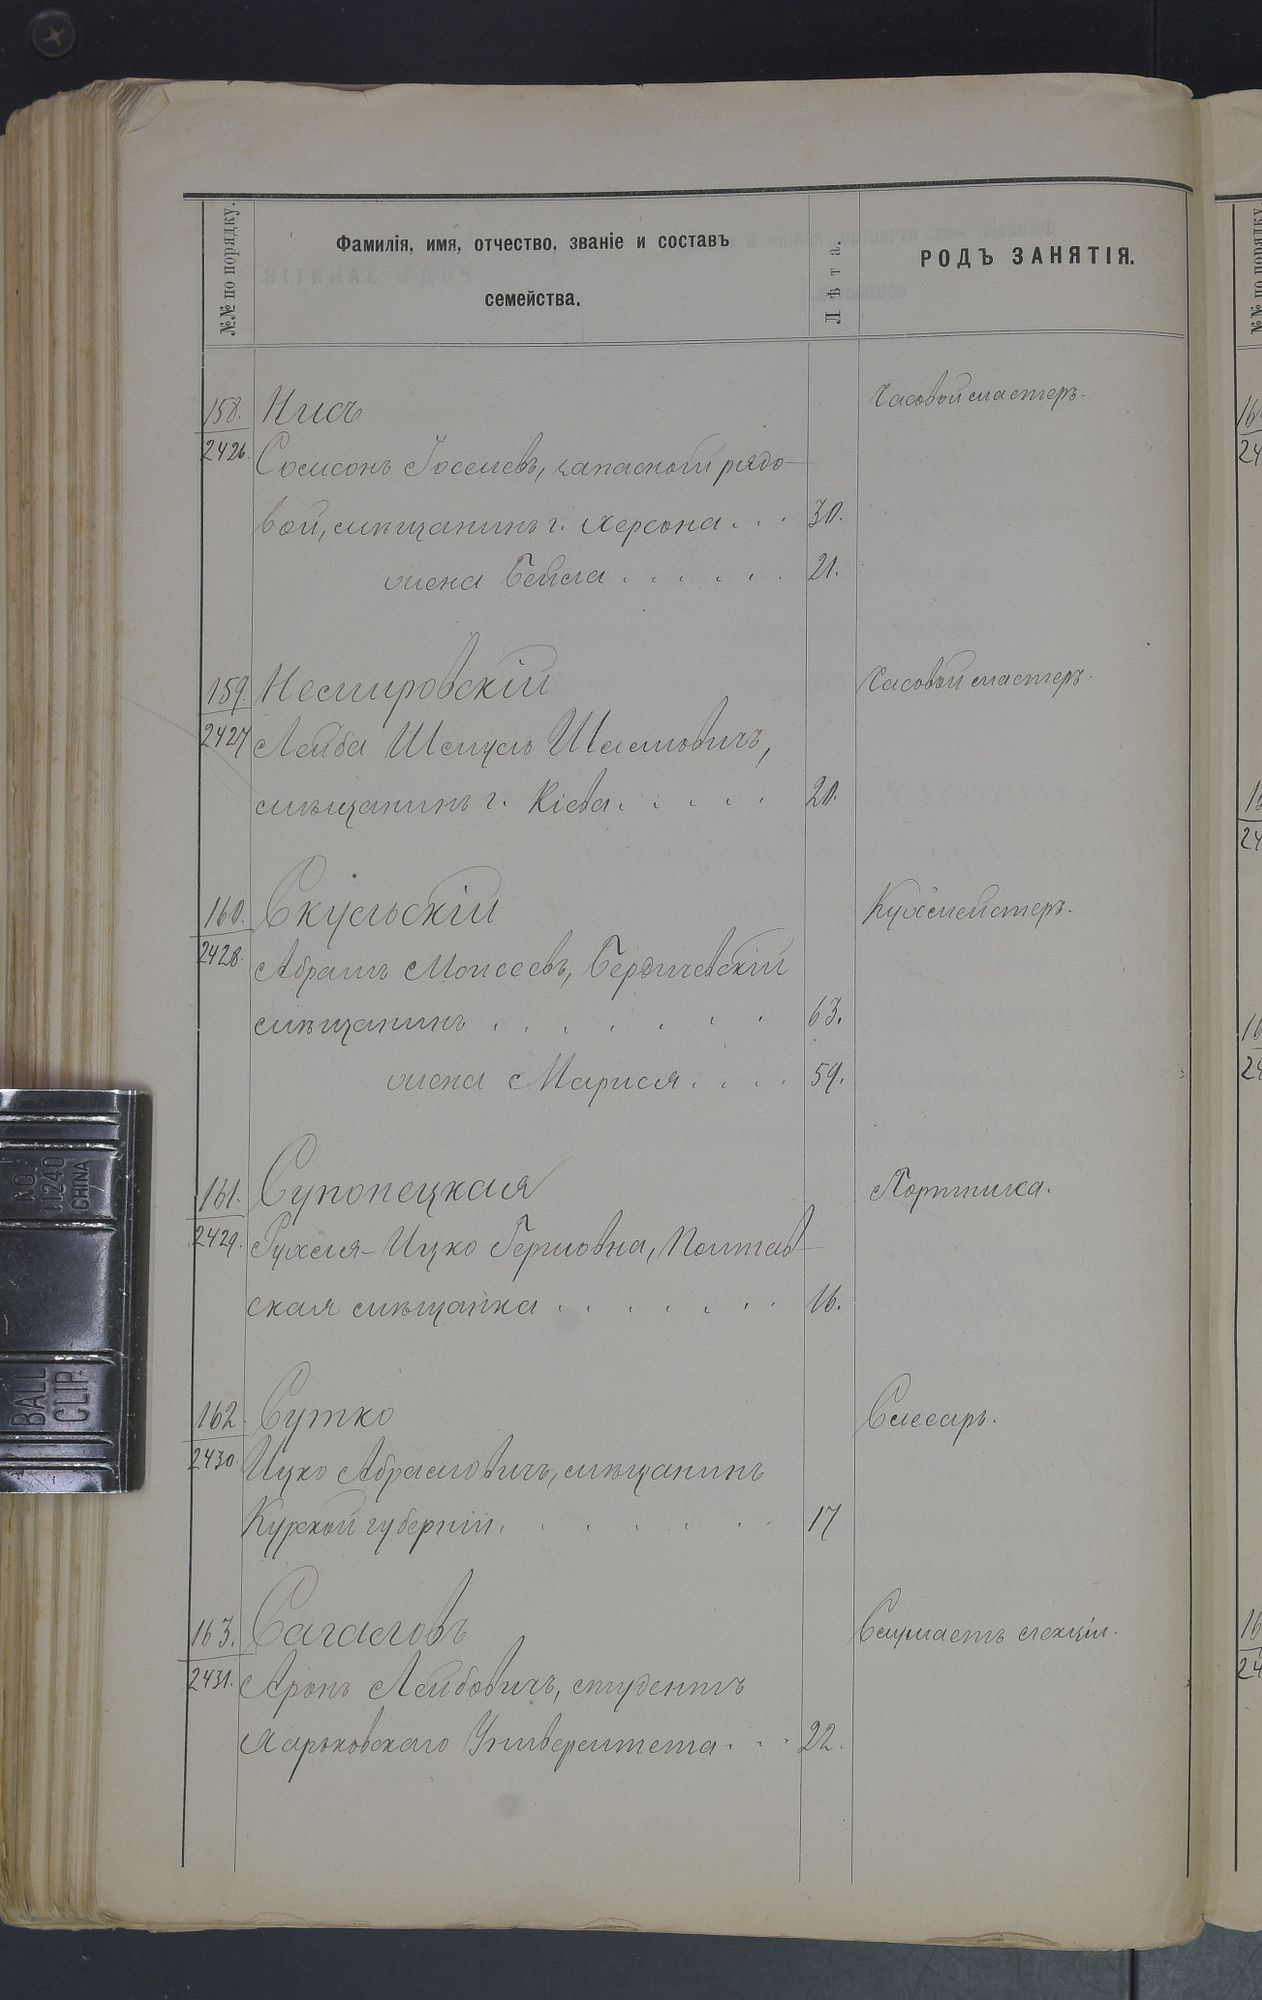 №№ по порядку.
Фамилія, имя, отчество, званіе и составъ
семейства.
Лѣта.
РОДЪ ЗАНЯТІЯ.
158. Нисъ Часовой мастеръ.
2426. Сомсонъ Іоселевъ, запасной рядо-
вой, мѣщанинъ г. Херсона . . . 30.
жена Бейла . . . . . . 21.
159. Немировскій Часовой мастеръ.
2427 Лейба Шмуль Шлемовичъ,
мѣщанинъ г. Кіева . . . . . 20.
160. Скульскій Кухмейстеръ.
2428. Абрамъ Моисеевъ, Бердичевскій
мѣщанинъ . . . . . . . 63.
жена Марися . . . . 59.
161. Супонецкая Портниха.
2429. Рухля-Ицко Гершовна, Полтав-
ская мѣщанка . . . . . . . 16.
162. Сутко Слесарь.
2430. Ицко Абрамовичъ, мѣщанинъ
Курской губерніи . . . . . . . 17
163. Сагаловъ Слушаетъ лекціи.
2431. Аронъ Лейбовичъ, студентъ
Харьковскаго Университета . . . 22.
NO.
11240
CHINA
BALL
CLIP